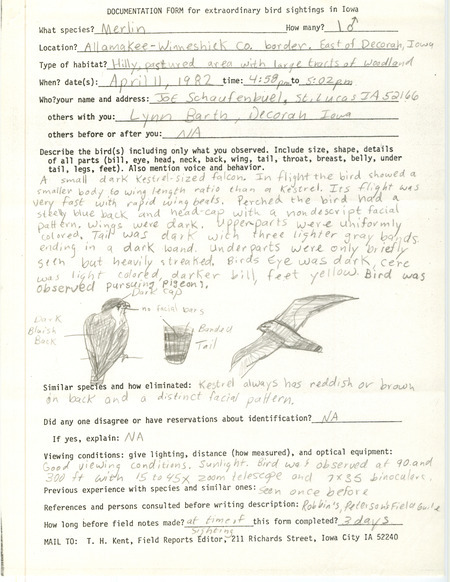 DOCUMENTATION FORM for extraordinary bird sightings in Iowa
What species? Merlin How many? 1 ♂
Location? Allamakee-Winneshiek Co. border. East of Decorah, Iowa
Type of habitat? Hilly, pastured area with large tracts of woodland
When? date(s): April 11, 1982 time: 4:58 pm to 5:02 pm
Who? your name and address: Joe Schaufenbuel, St. Lucas IA 52166
others with you: Lynn Barth, Decorah Iowa
others before or after you: NA
Describe the bird(s) including only what you observed. Include size, shape, details
of all parts (bill, eye, head, neck, back, wing, tail, throat, breast, belly, under
tail, legs, feet). Also mention voice and behavior.
A small dark Kestrel-sized falcon. In flight the bird showed a
smaller body to wing length ratio than a Kestrel. Its flight was
very fast with rapid wing beats. Perched the bird had a
steely blue back and head-cap with a nondescript facial
pattern. Wings were dark. Upperparts were uniformly
colored. Tail was dark with three lighter gray bands
ending in a dark band. Underparts were only briefly
seen but heavily streaked. Birds eye was dark, cere
was light colored, darker bill, feet yellow. Bird was
observed pursuing pigeons.
Dark cap
no facial bars
Dark
Bluish
Back
Banded
Tail
Similar species and how eliminated: Kestrel always has reddish or brown
on back and a distinct facial pattern.
Did any one disagree or have reservations about identification? NA
If yes, explain: NA
Viewing conditions: give lighting, distance (how measured), and optical equipment:
Good viewing conditions. Sunlight. Bird was observed at 90 and
300 ft with 15 to 45x zoom telescope and 7x35 binoculars.
Previous experience with species and similar ones: seen once before
References and persons consulted before writing description: Robbin's, Peterson's Field Guide
How long before field notes made? at time of sighting this form completed? 3 days
MAIL TO: T. H. Kent, Field Reports Editor, 211 Richards Street, Iowa City IA 52240